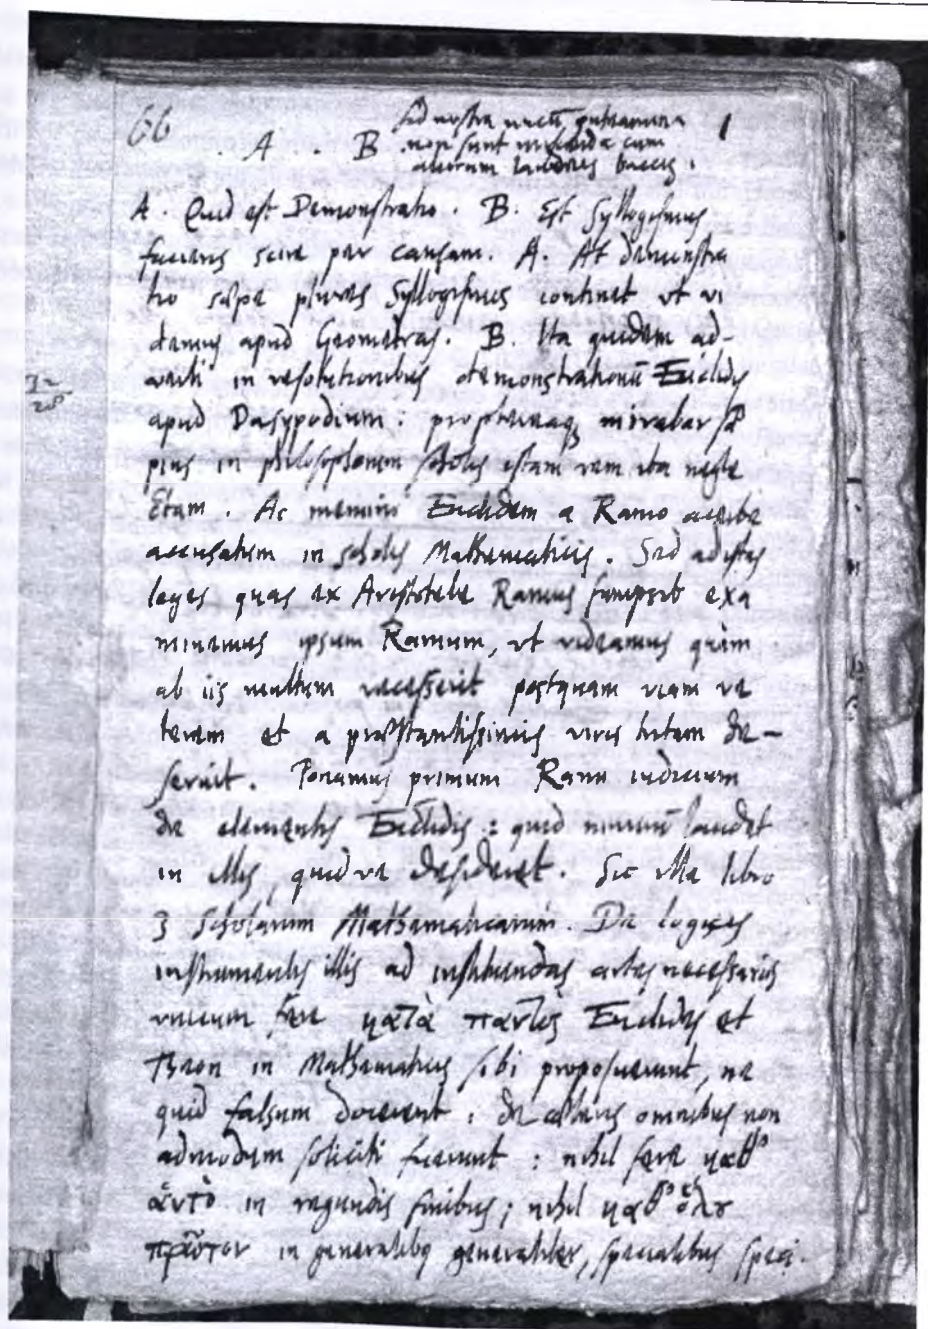 66
1
sed nostra
. A . B non sunt miscenda cum
aliorum
A . Quid est Demonstratio . B . Est Syllogismus
faciens scire per causam . A . At demonstra
tio sæpe plures Syllogismos continet ut vi
demus apud Geometras . B . Ita quidem ad-
verti in resolutionibus demonstrationū Euclidis
apud Dasypodium : proptereaq; mirabar sæ
pius in philosophorum scholis istam rem ita negle
ctam . Ac memini Euclidem a Ramo acerbe
accusatum in scholis Mathematicis . Sed ad istas
leges quas ex Aristotele Ramus sumpsit exa
minemus ipsum Ramum, ut videamus quàm
ab iis multum recesserit postquam viam ve
terem et a præstantissimis viris tritam de-
seruit . Ponamus primum Rami iudicium
de elementis Euclidis : quid nimirū laudet
in illis, quid ve desideret . Sic ille libro
3 Scholarum Mathematicarum . De logicis
instrumentis illis ad instituendas artes necessariis
unicum fere κατὰ παντὸς Euclides et
Theon in Mathematicis sibi proposuerunt, ne
quid falsum docerent : de cæteris omnibus non
admodum soliciti fuerunt : nihil fere καθ'
ἁυτὸ in regundis finibus ; nihil καθ' ὅλου
πρῶτον in generalibq generaliter, specialibus speci-
12
28